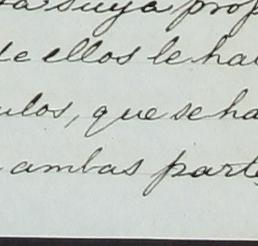 suya prop
de ellos le ha
ulos, que se ha
ambas parte